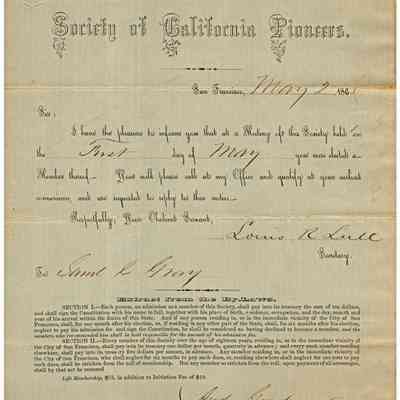 Society of California Pioneers.
San Francisco, May 2 186
Sir:
I have the pleasure to inform you that at a Meeting of this Society held on
the First day of May you were elected a
Member thereof. You will please call at my Office and qualify at your earliest
convenience, and are requested to reply to this notice.
Respectfully, Your Obedient Servant,
Louis R Lull
Secretary.
To Saml C Gray
Extract from the By-Laws.
SECTION I.—Each person, on admission as a member of this Society, shall pay into its treasury the sum of ten dollars,
and shall sign the Constitution with his name in full, together with his place of birth, residence, occupation, and the day, month and
year of his arrival within the limits of this State; And if any person residing in, or in the immediate vicinity of the City of San
Francisco, shall, for one month after his election, or, if residing in any other part of the State, shall, for six months after his election,
neglect to pay his admission fee and sign the Constitution, he shall be considered as having declined to become a member, and the
moneys, if any, paid by him shall be held forfeited for the account of his admission.
SECTION II.—Every member of this Society over the age of eighteen years, residing in, or in the immediate vicinity of
the City of San Francisco, shall pay into its treasury one dollar per month, quarterly in advance; and every such member residing
elsewhere, shall pay into its treasury five dollars per annum, in advance. Any member residing in, or in the immediate vicinity of
the City of San Francisco, who shall neglect for six months to pay such dues, or, residing elsewhere shall neglect for one year to
pay such dues, shall be stricken from the roll of membership. But any member so stricken from the roll, upon payment of all arrearages,
shall by that act be restored
Life Membership, $50, in addition to Initiation Fee of $10.